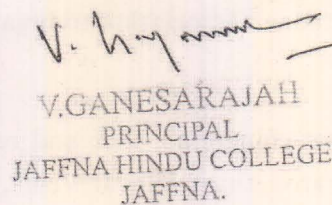 V.GANESARAJAH
PRINCIPAL
JAFFNA HINDU COLLEGE
JAFFNA.